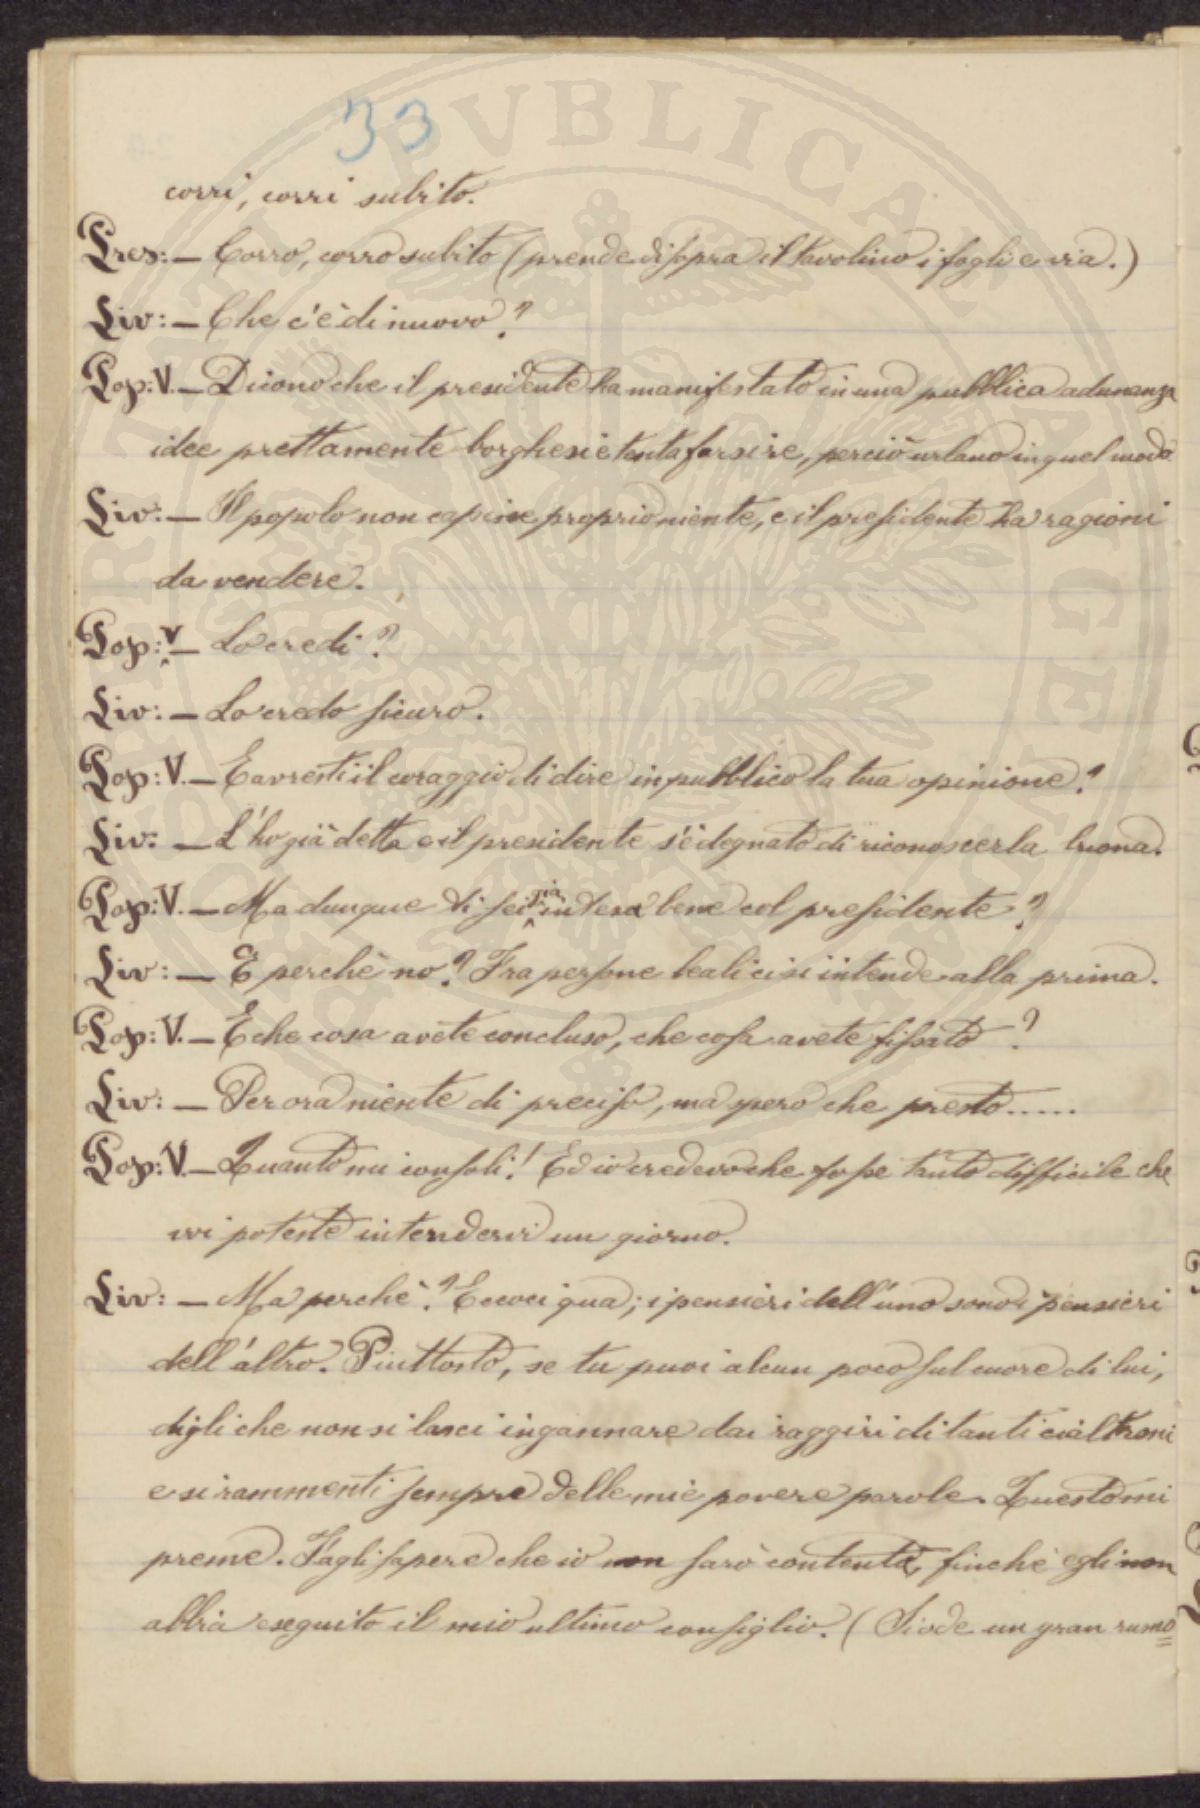 33
corri, corri subito.
Pres: — Corro, corro subito (prende di sopra il tavolino i fogli e via.)
Liv: — Che c'è di nuovo?
Pop: V. — Dicono che il presidente ha manifestato in una pubblica adunanza
idee prettamente borghesi e tenta farsi re, perciò urlano in quel modo.
Liv: — Il popolo non capisce proprio niente, e il presidente ha ragioni
da vendere.
Pop: V — Lo credi?
Liv: — Lo credo sicuro.
Pop: V. — E avresti il coraggio di dire in pubblico la tua opinione?
Liv: — L'ho già detta e il presidente s'è degnato di riconoscerla buona.
Pop: V. — Ma dunque ti sei già intesa bene col presidente?
Liv: — E perchè no? Fra persone leali ci si intende alla prima.
Pop: V. — E che cosa avete concluso, che cosa avete fissato?
Liv: — Per ora niente di preciso, ma spero che presto.....
Pop: V. — Quanto mi consoli! Ed io credevo che fosse tanto difficile che
voi poteste intendervi un giorno.
Liv: — Ma perchè? Eccoci qua; i pensieri dell'uno sono i pensieri
dell'altro. Piuttosto, se tu puoi alcun poco sul cuore di lui,
digli che non si lasci ingannare dai raggiri di tanti cialtroni
e si rammenti sempre delle mie povere parole. Questo mi
preme. Fagli sapere che io non sarò contenta, finchè egli non
abbia eseguito il mio ultimo consiglio. (Si ode un gran rumo=
PVBLICAE